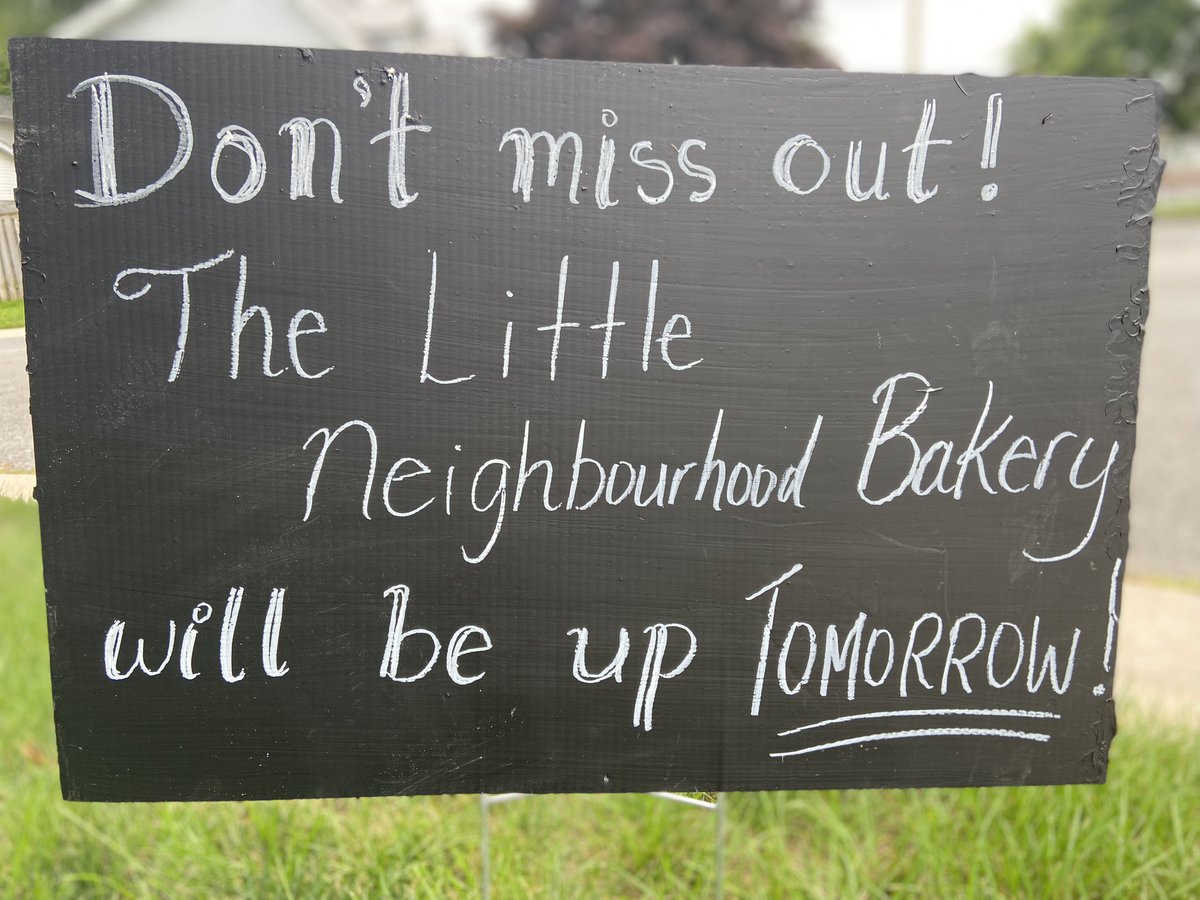 Don't miss out!
The Little
Neighbourhood Bakery
will be up TOMORROW!